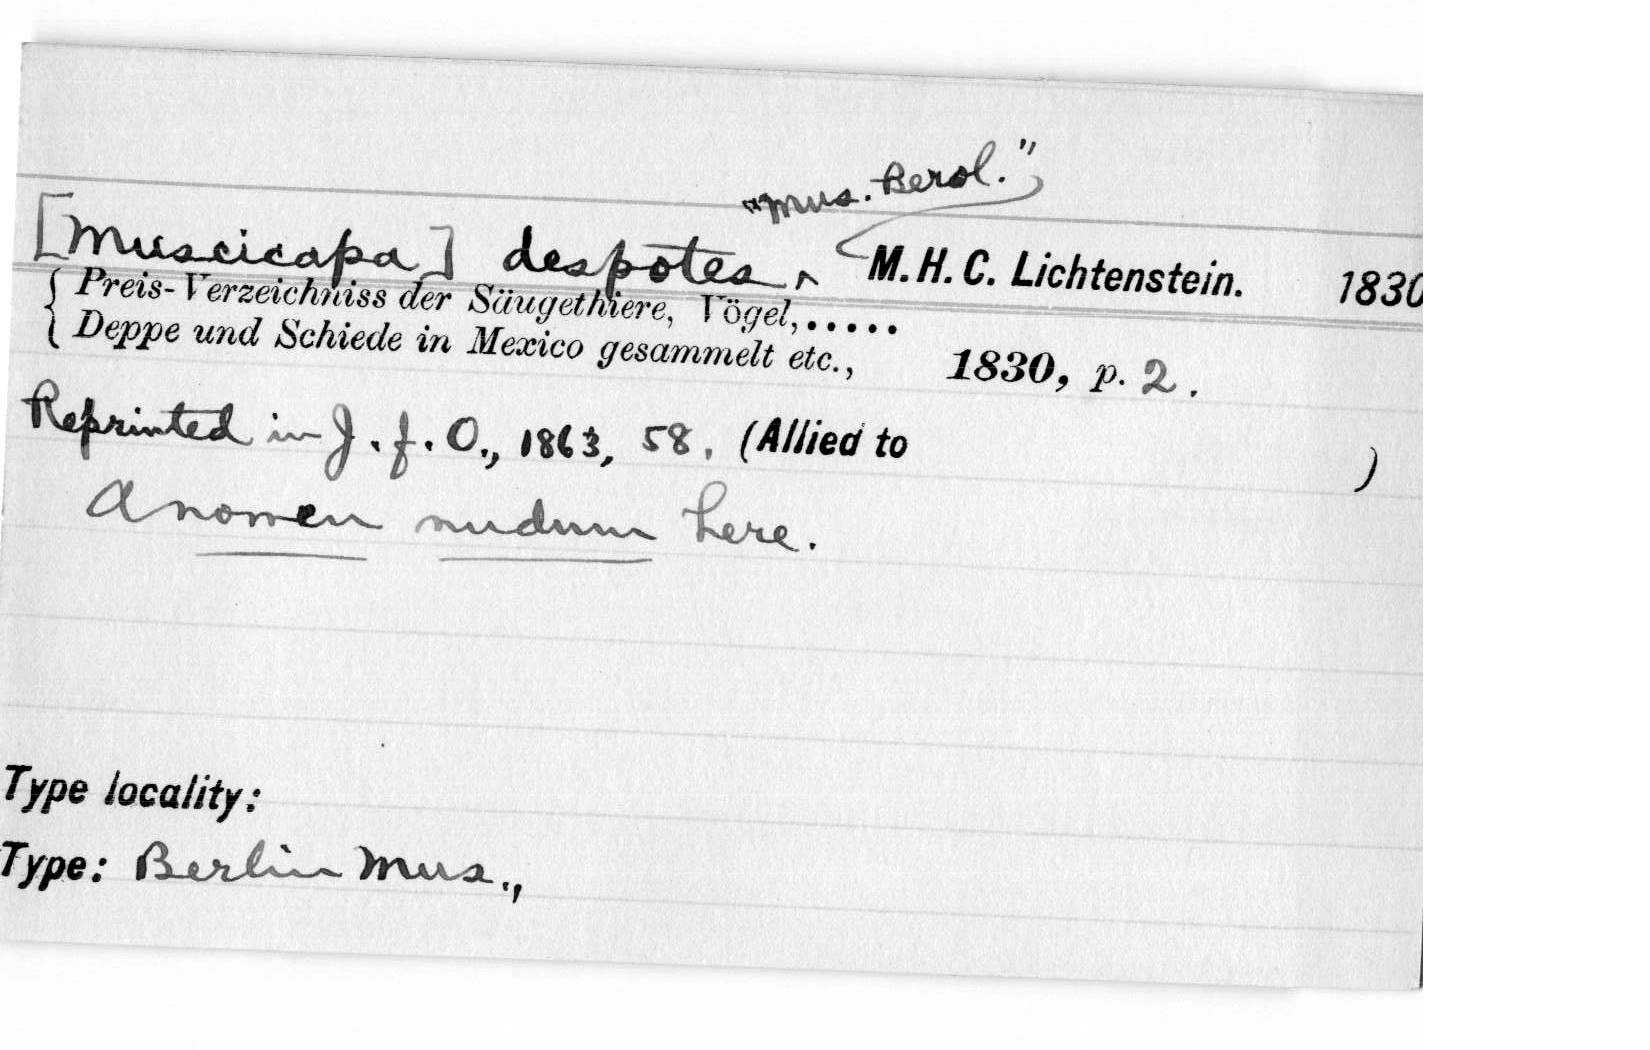 "Mus. Berol."
[Muscicapa] despotes ^ M.H.C. Lichtenstein. 1830
{ Preis-Verzeichniss der Säugethiere, Vögel,.....
{ Deppe und Schiede in Mexico gesammelt etc., 1830, p. 2.
Reprinted in J.f.O., 1863, 58. (Allied to )
A nomen nudum here.
Type locality:
Type: Berlin Mus.,